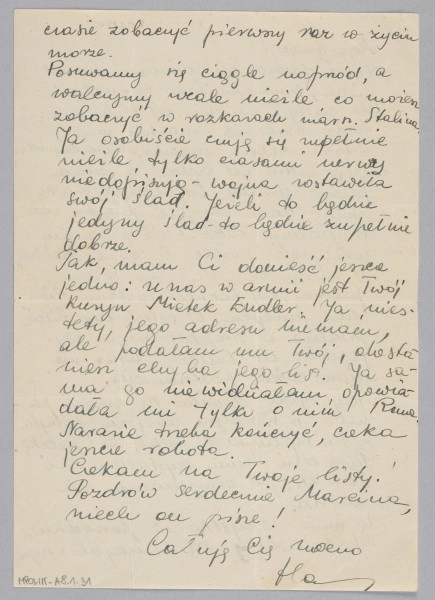 czasie zobaczyć pierwszy raz w życiu
morze.
Posuwamy się ciągle naprzód, a
walczymy wcale nieźle co możesz
zobaczyć w rozkazach marsz. Stalina.
Ja osobiście czuję się zupełnie
nieźle tylko czasami nerwy
niedopisują - wojna zostawiła
swój ślad. Jeżeli to będzie
jedyny ślad - to będzie zupełnie
dobrze.
Tak, mam Ci donieść jeszcze
jedno: u nas w armii jest Twój
kuzyn Mietek Endler. Ja nies-
tety, jego adresu nie mam,
ale podałam mu Twój, dosta
niesz chyba jego list. Ja sa-
ma go niewidziałam, opowia-
dała mi tylko o nim
Narazie trzeba kończyć, czeka
jeszcze robota.
Czekam na Twoje listy!
Pozdrów serdecznie Marcina,
niech on pisze!
Całuję Cię mocno
Ha
MPOLIN-A8.1.31